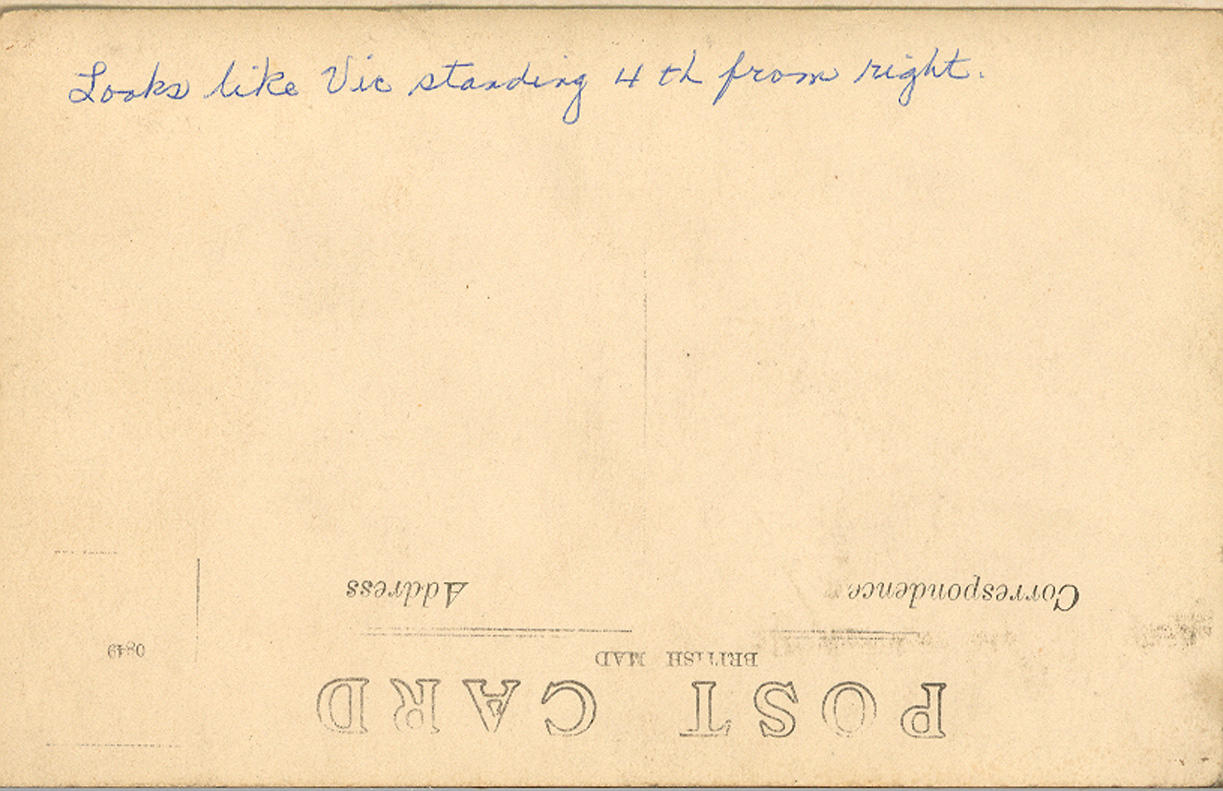 Looks like Vic standing 4 th from right.
POST CARD
BRITISH MAD
Correspondence
Address
0g49